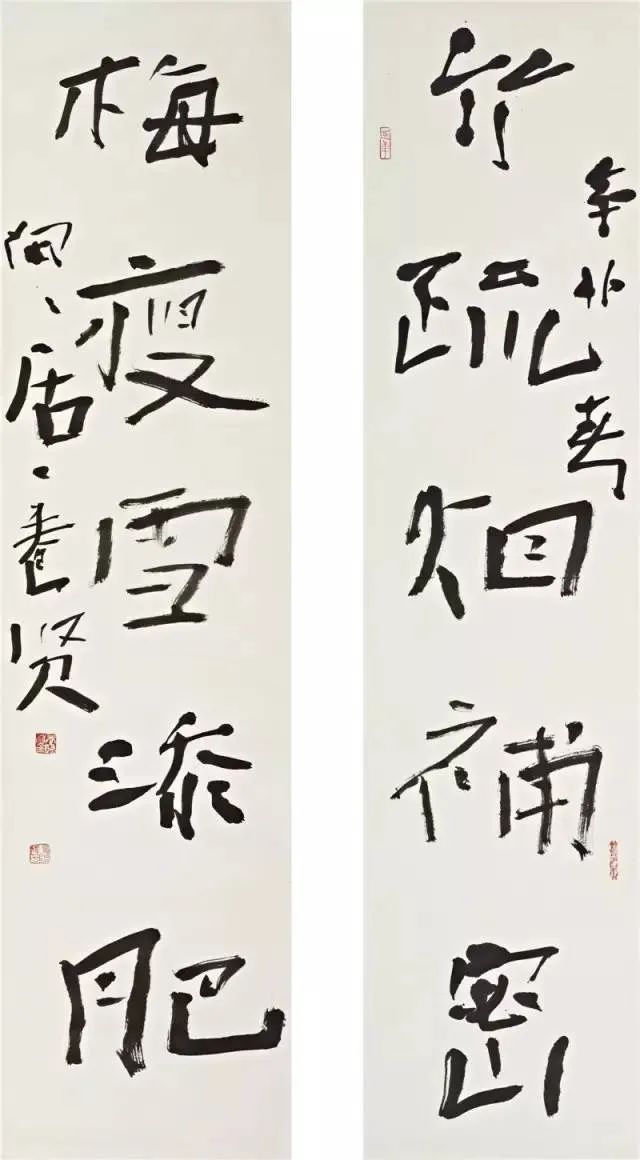 辛卯春
竹疏烟補密
梅瘦雪添肥
居
贤